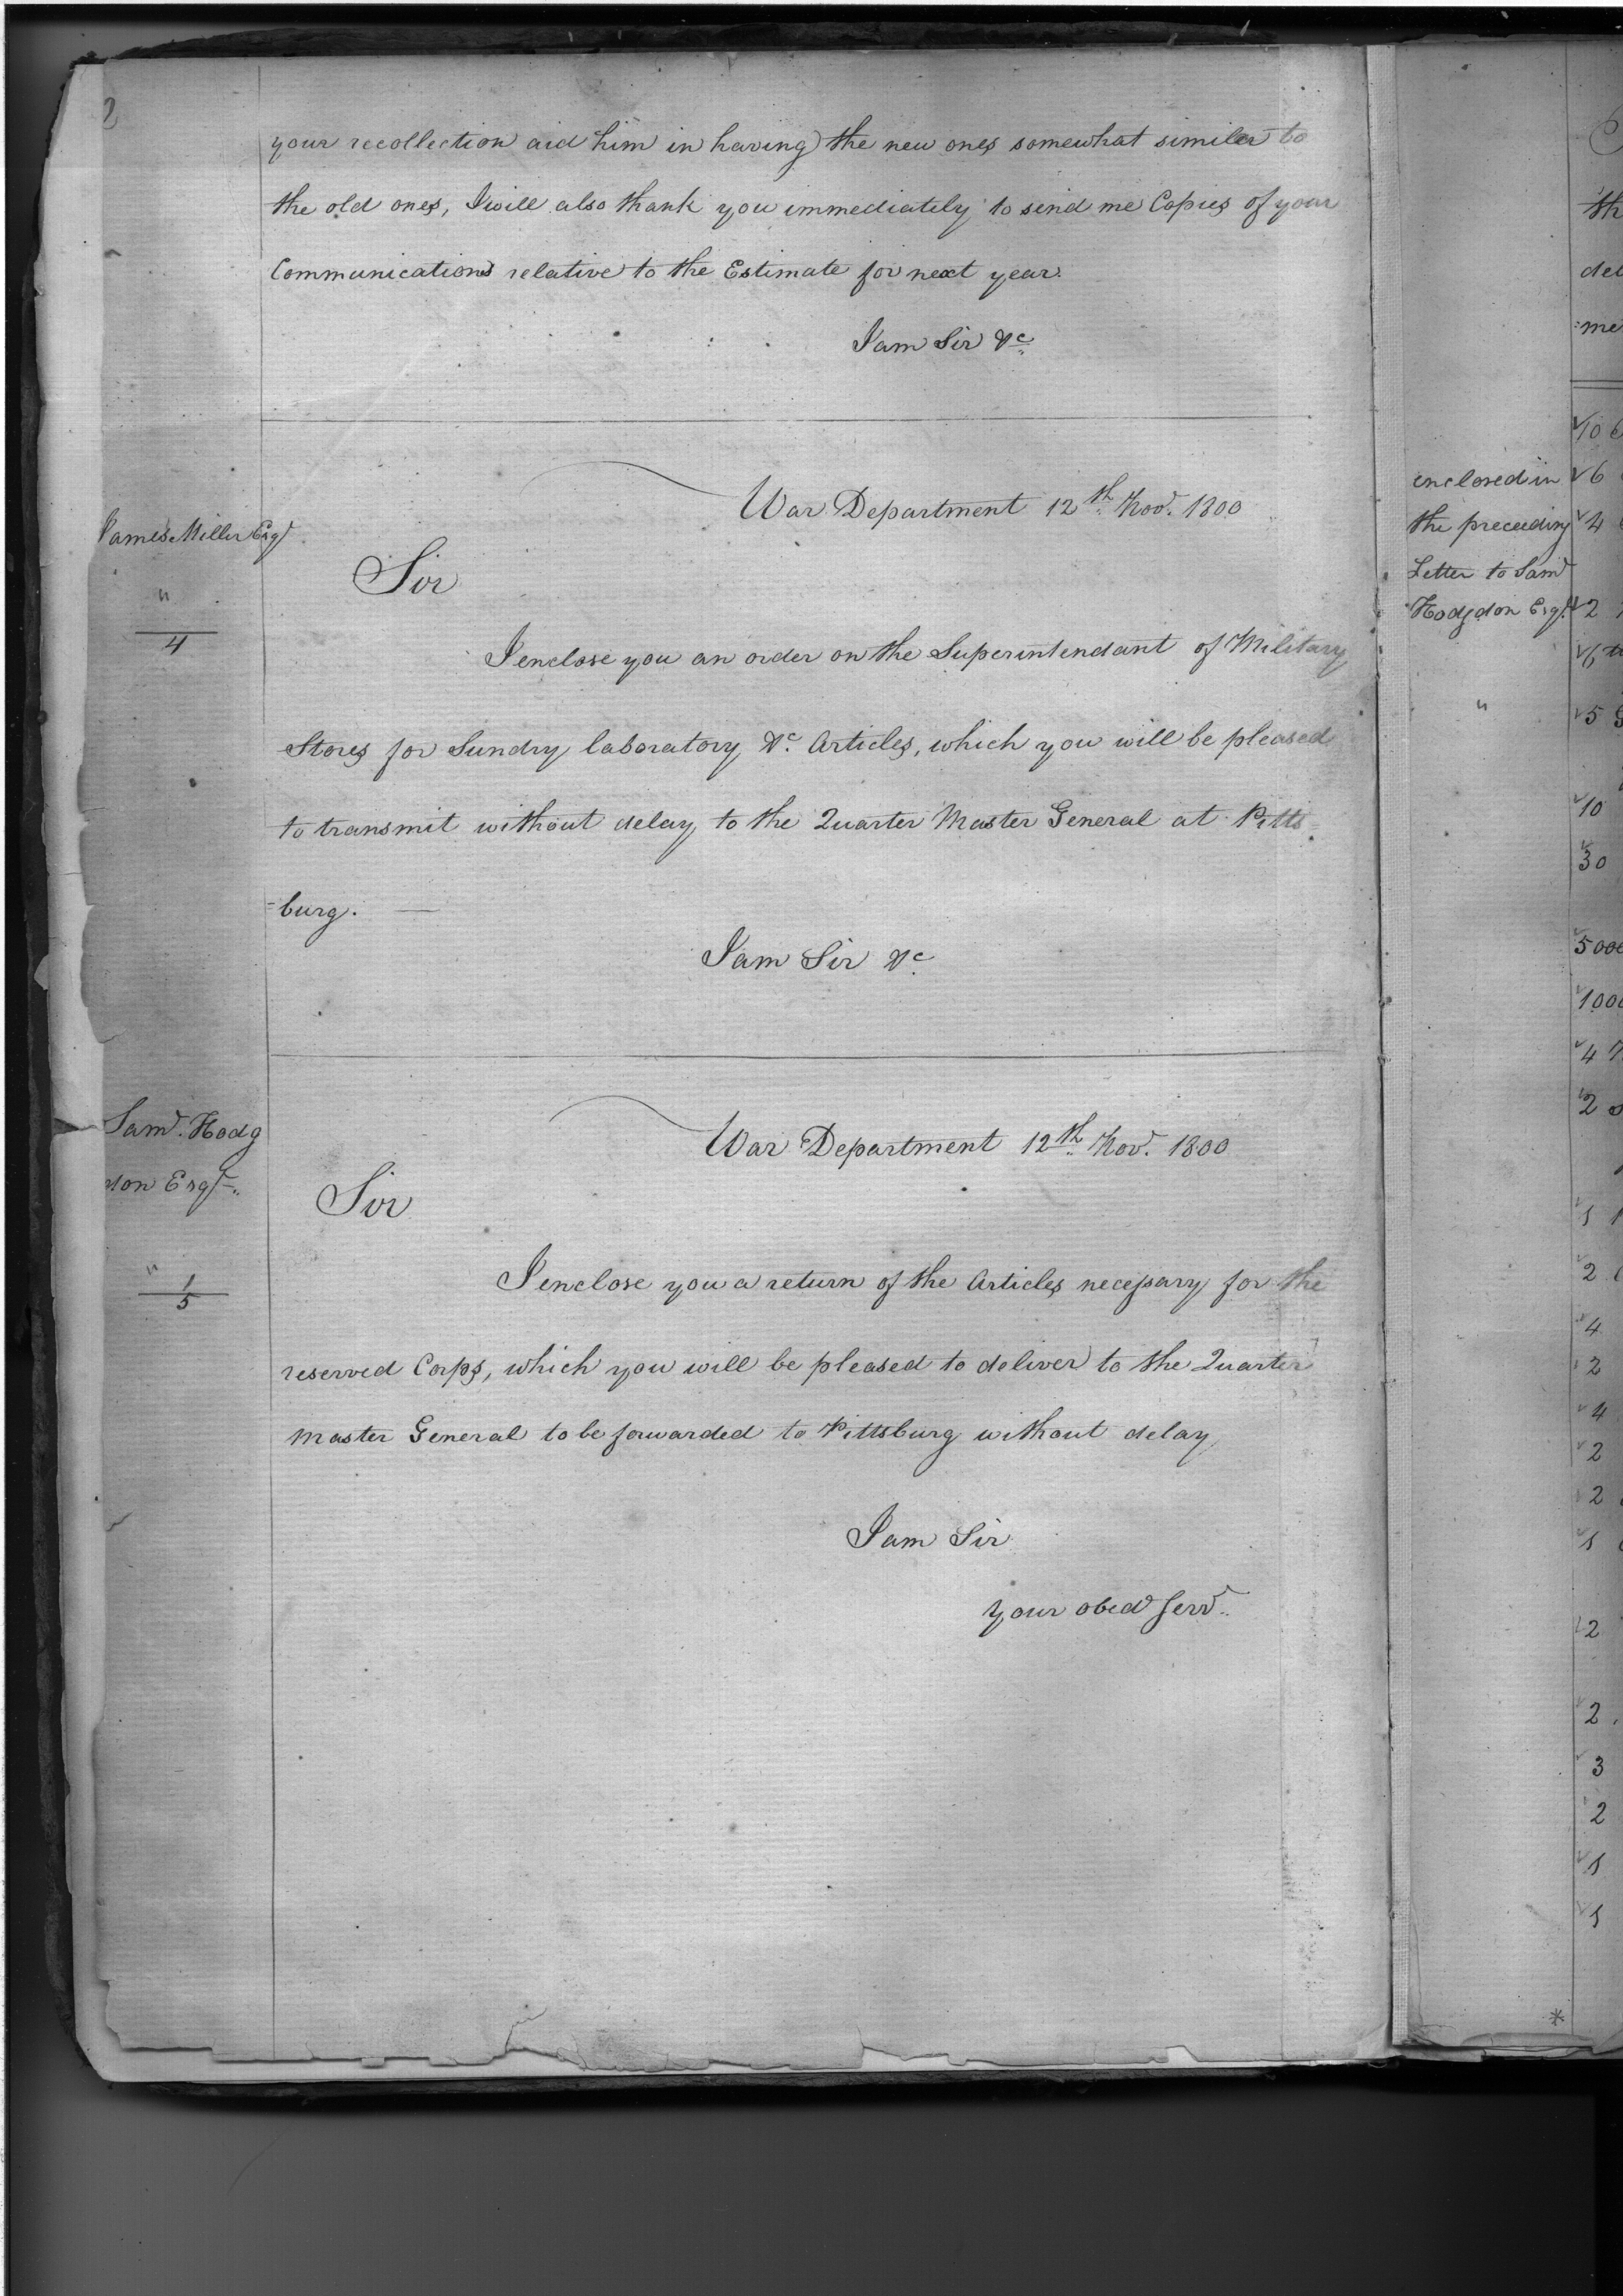 2
your recollection aid him in having the new ones somewhat similar to
the old ones, I will also thank you immediately to send me Copies of your
Communications relative to the Estimate for next year.
I am Sir &c
James Miller Esqr
"
4
War Department 12th Novr. 1800
Sir
I enclose you an order on the Superintendant of Military
Stores for Sundry laboratory &c. Articles, which you will be pleased
to transmit without delay to the Quarter Master General at Pitts
=burg. —
I am Sir &c
Saml. Hodg
don Esqr.
"
1
5
War Department 12th Novr. 1800
Sir
I enclose you a return of the Articles necessary for the
reserved Corps, which you will be pleased to deliver to the Quarter
Master General to be forwarded to Pittsburg without delay
I am Sir
your obed Servt.
enclosed in
the preceeding
Letter to Saml
Hodgdon Esqr.
"
th
del
=me
10
6
4
2
5
10
30
5000
1000
4
2
1
2
4
2
4
2
2
1
2
2
3
2
1
1
*